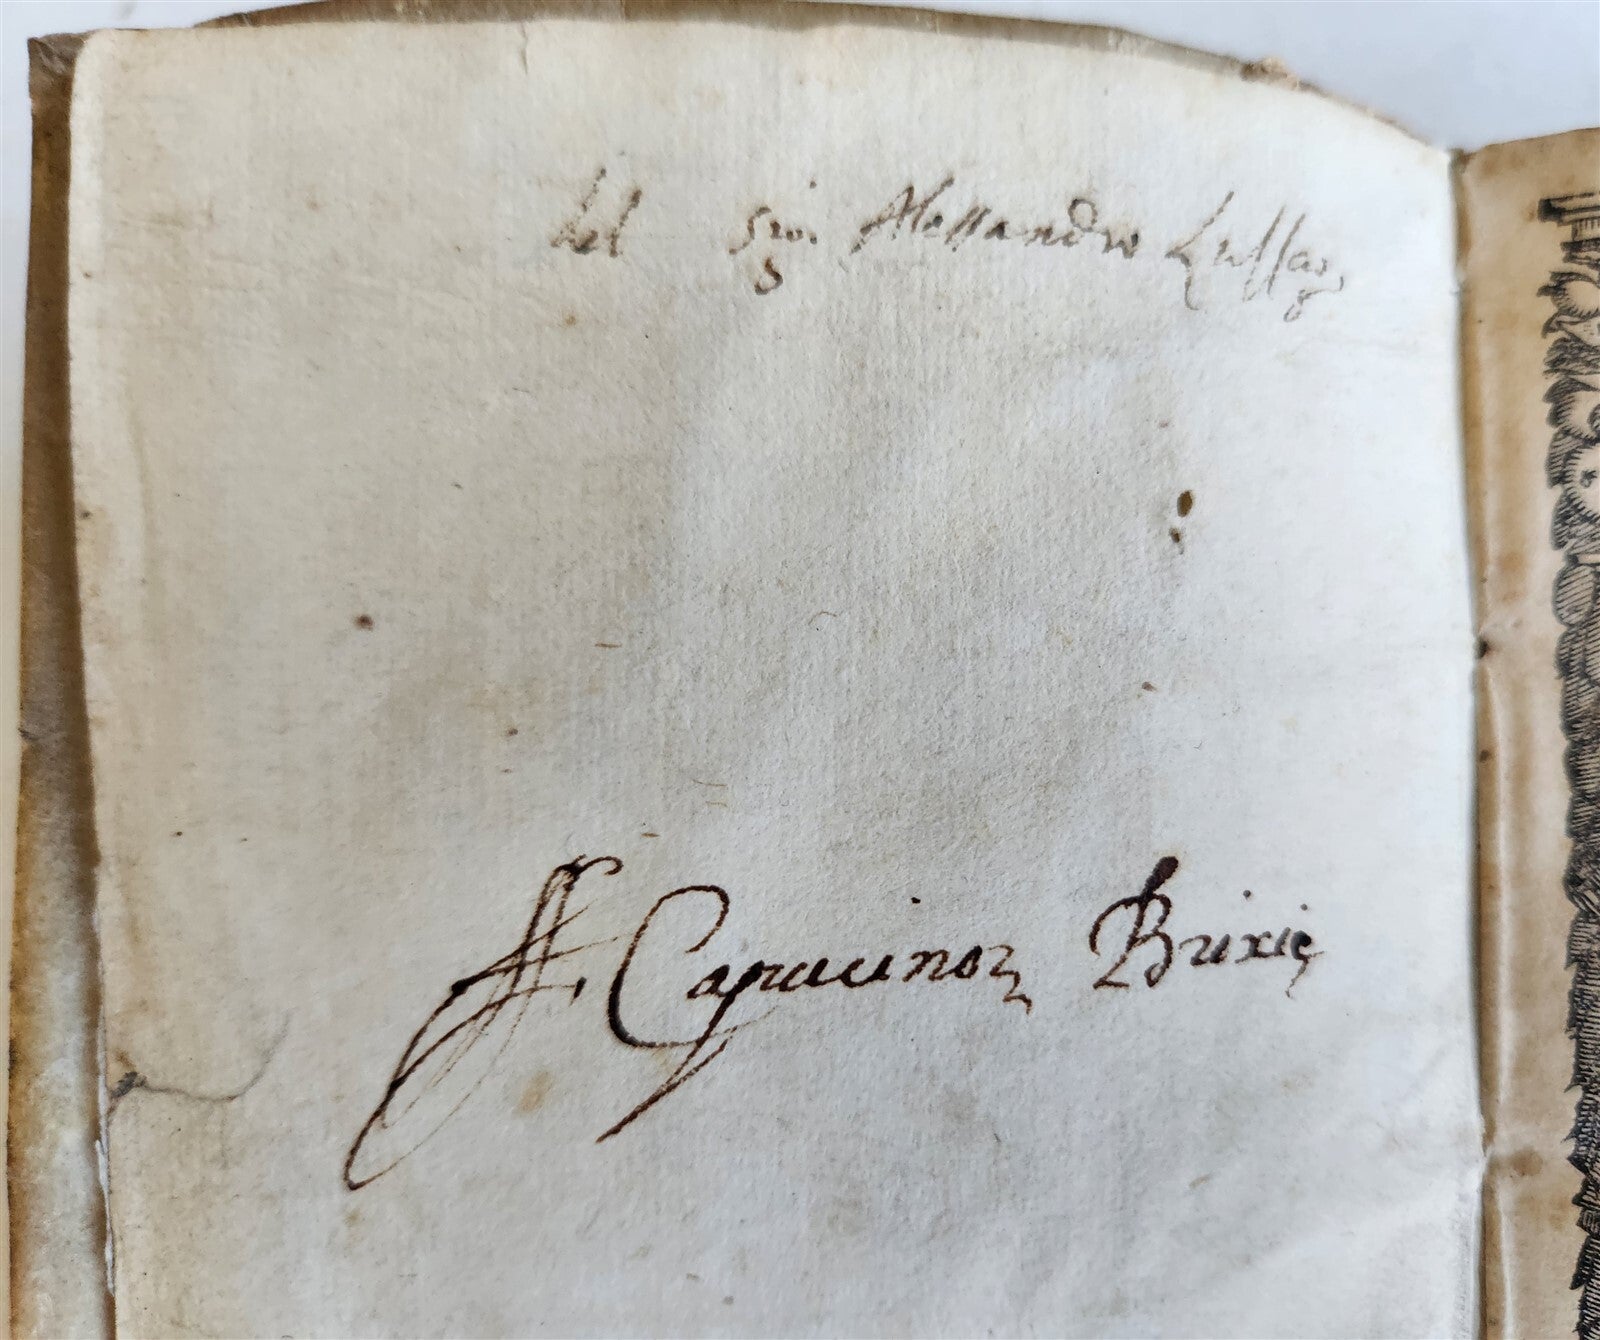 del sig. Alessandro
ff. Capucinoꝝ Brixię